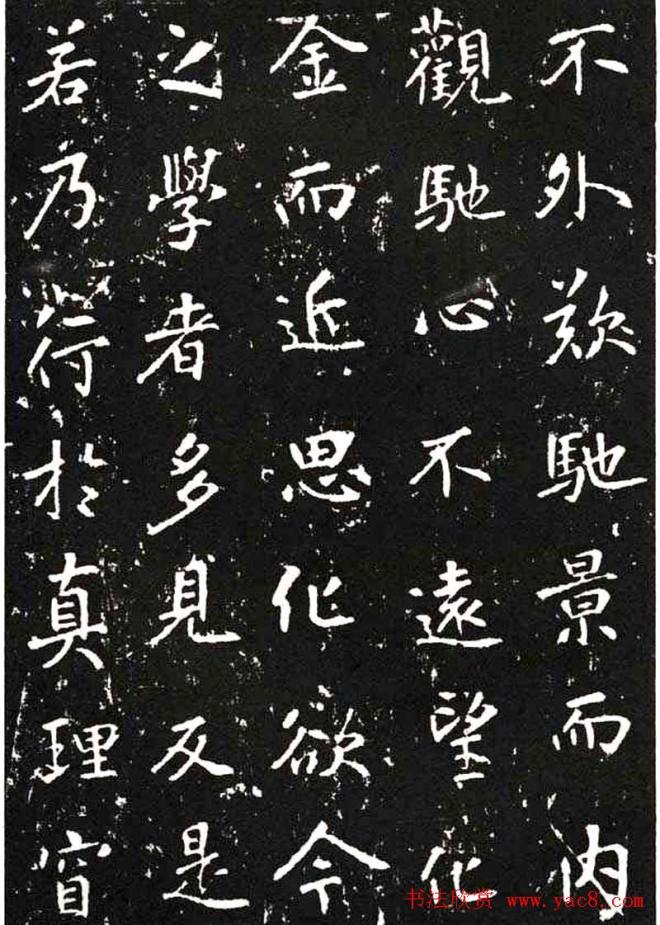 不外欵馳景而内
觀馳心不遠望化
金而近思化欲今
之學者多見反是
若乃行於真理窅
书法欣赏 www.yac8.com